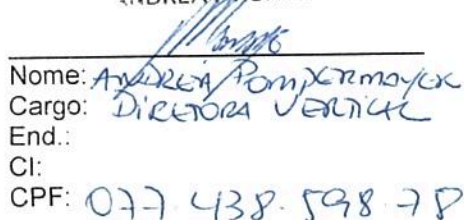 Nome: ANDREA POMPERMAYER
Cargo: DIRETORA VERTICAL
End.:
CI:
CPF: 077.438.598-78